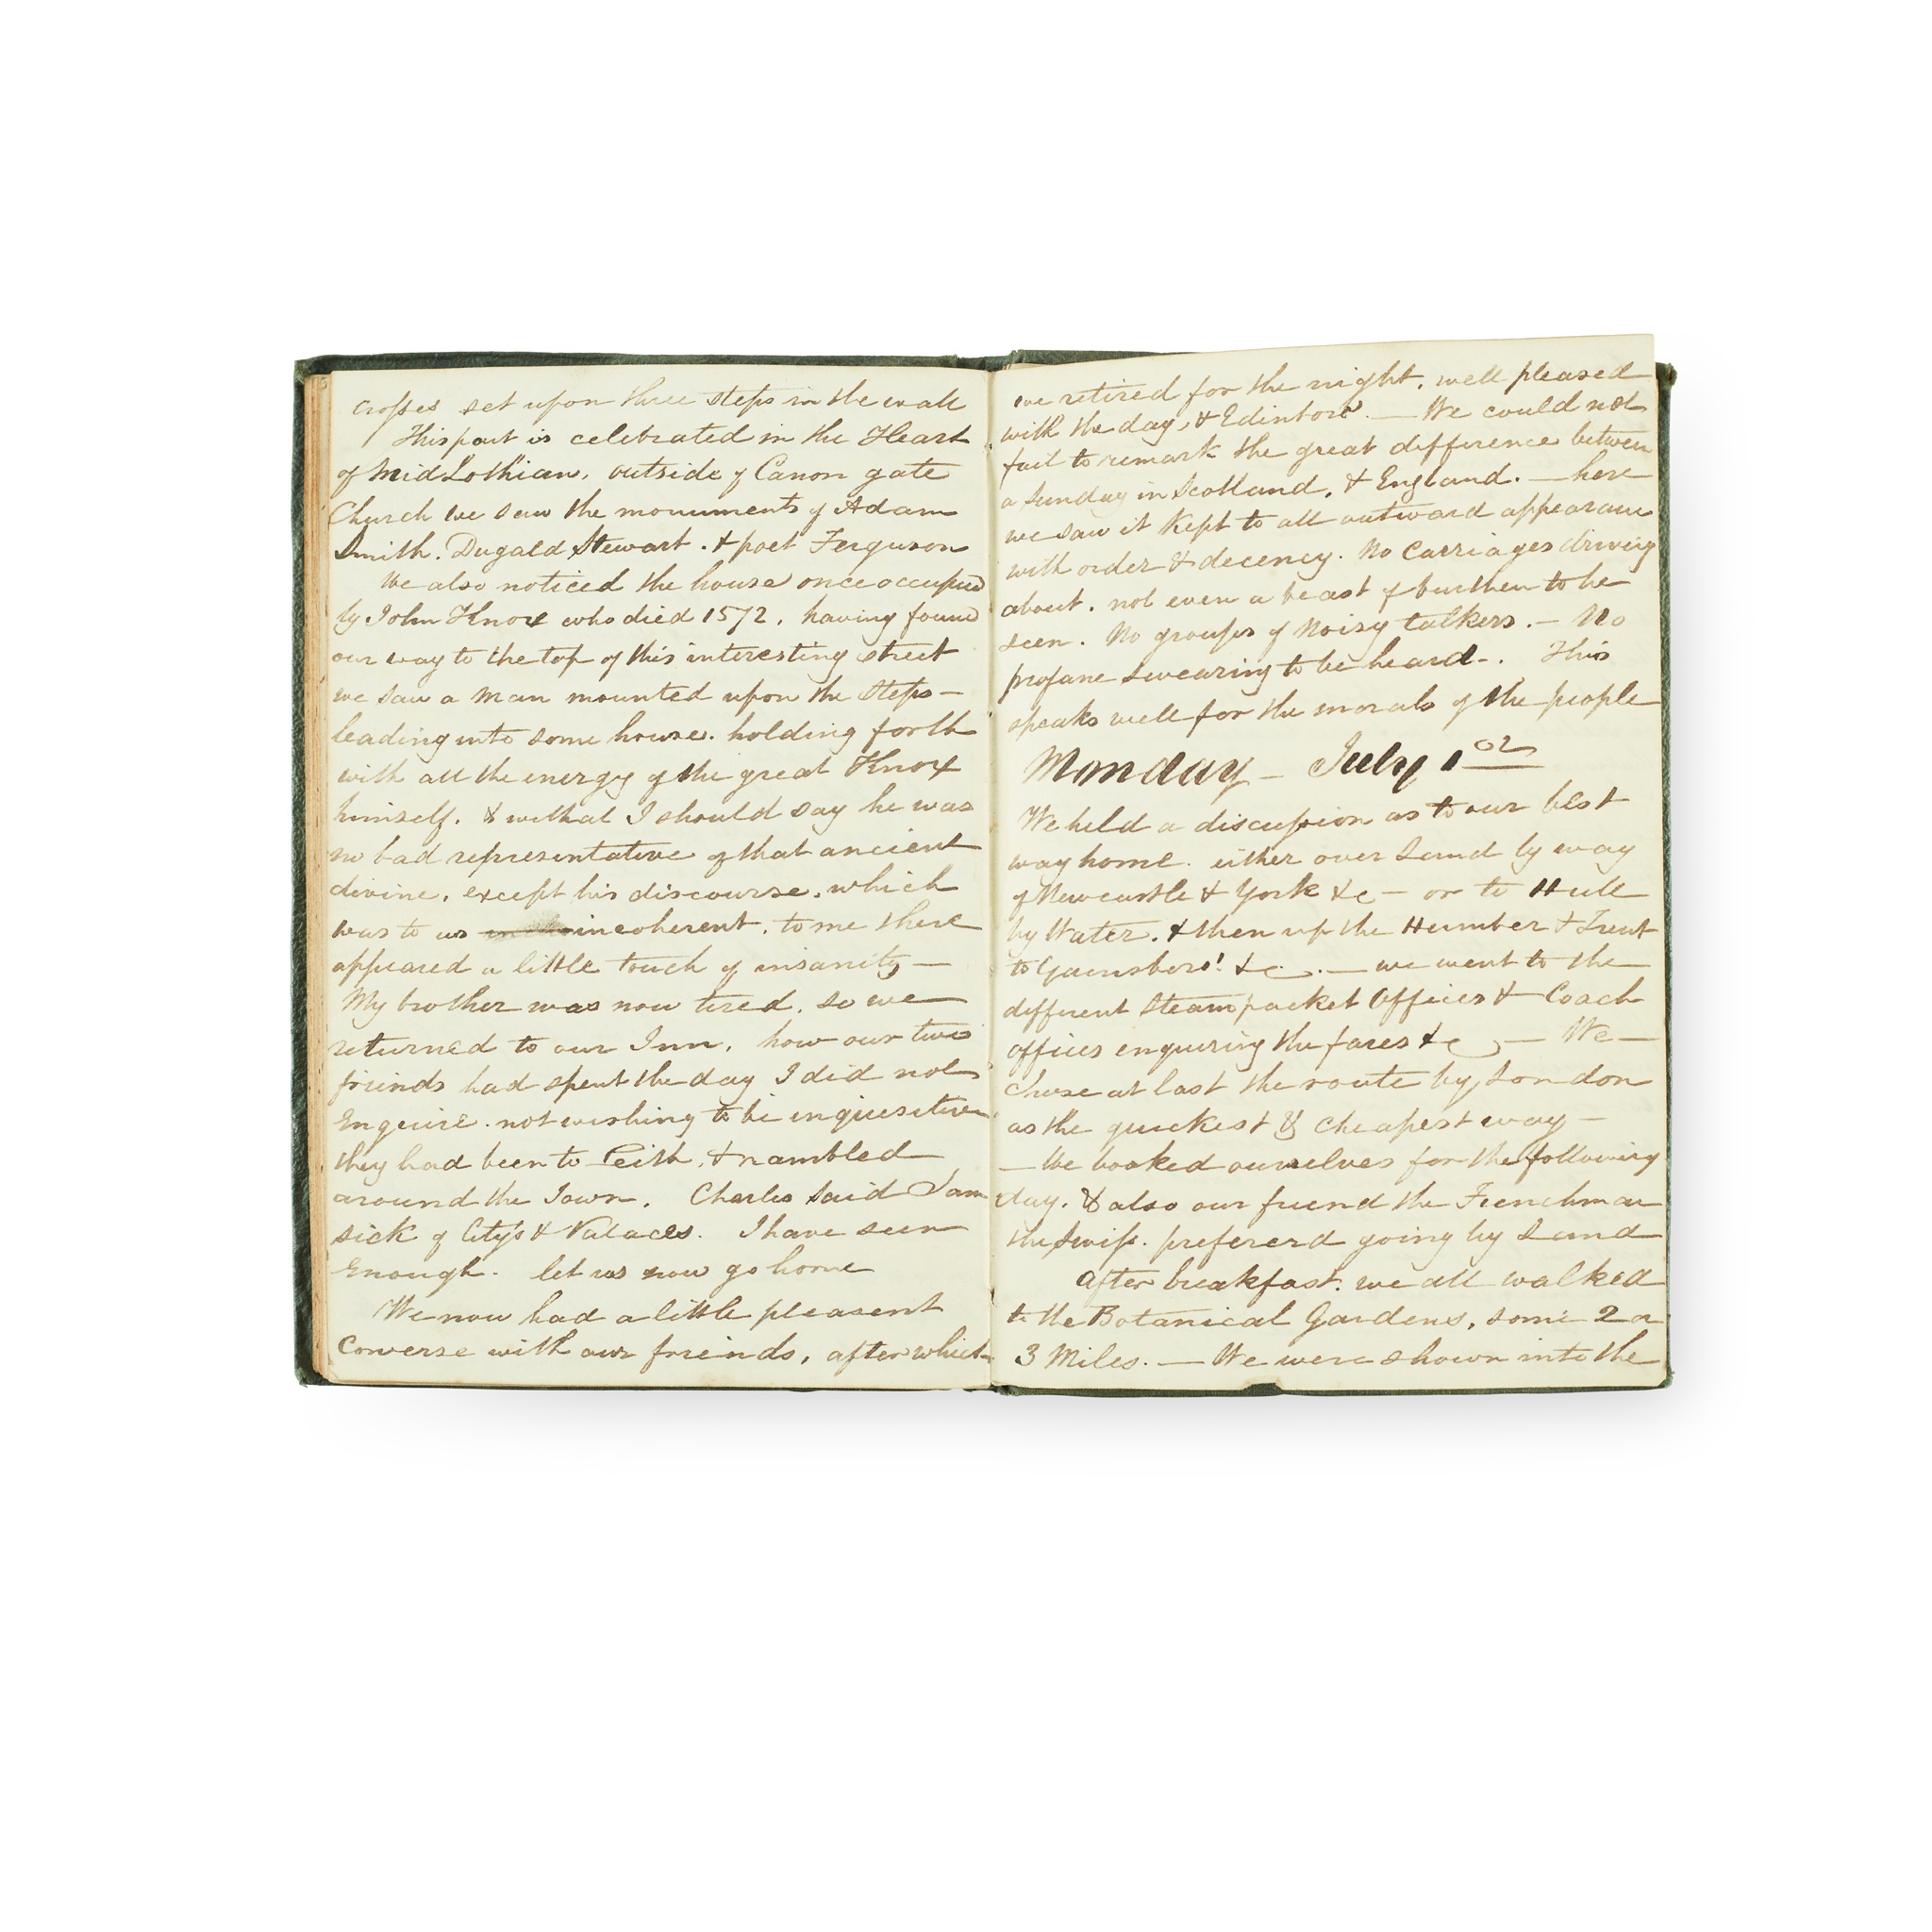 crosses set upon three steps in the wall
This part is celebrated in the Heart
of MidLothian, outside of Canon gate
Church we saw the monuments of Adam
Smith. Dugald Stewart. & poet Ferguson
We also noticed the house once occupied
by John Knox who died 1572, having found
our way to the top of this interesting street
we saw a man mounted upon the steps —
leading into some house. holding forth
with all the energy of the great Knox
himself. & withal I should say he was
no bad representative of that ancient
divine, except his discourse, which
was to us incoherent, to me there
appeared a little touch of insanity —
My brother was now tired, so we
returned to our Inn, how our two
friends had spent the day I did not
Enquire. not wishing to be inquisitive
they had been to Leith, & rambled
around the Town. Charles said I am
sick of City's & Palaces. I have seen
Enough. let us now go home
We now had a little pleasent
Converse with our friends, after which
we retired for the night, well pleased
with the day, & Edinboro'. — We could not
fail to remark the great difference between
a Sunday in Scotland, & England. — here
we saw it Kept to all outward appearance
with order & decency. No Carriages driving
about. not even a beast of burthen to be
seen. No groups of Noisy talkers. — No
profane swearing to be heard -. This
speaks well for the morals of the people
Monday — July 1
We held a discussion as to our best
way home. either over Land by way
of Newcastle & York &c — or to Hull
by Water. & then up the Humber & Trent
to Gainsboro'. &c. — we went to the
different Steam packet Offices & Coach
offices enquiring the fares &c — We —
Chose at last the route by London
as the quickest & cheapest way —
— We booked ourselves for the following
day. & also our friend the Frenchman
the Swiss. prefererd going by Land
After breakfast. we all walked
to the Botanical Gardens, some 2 or
3 Miles. — We were shown into the